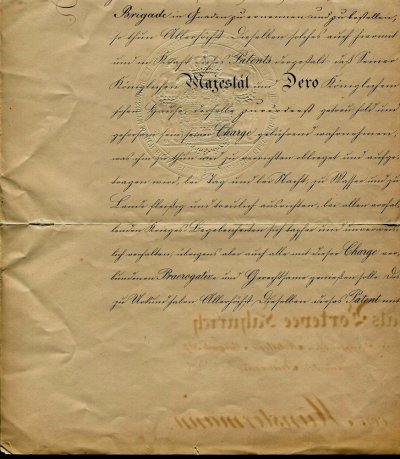 Brigade in Gnaden zu ernennen und zu bestellen,
so thun Allerhöchst Dieselben solches auch hiermit
und in Kraft dieses Patents dergestalt daß Seiner
Königlichen Majestät und Dero Königlichem
Hause, derselbe zuvörderst getreu, hold und
gehorsam sein, seine Charge gebührend wahrnehmen,
was ihm zu thun und zu verrichten obliegt und aufge-
tragen wird, bei Tag und bei Nacht, zu Wasser und zu
Lande fleißig und treulich ausrichten, bei allen vorfal-
lenden Krieges-Begebenheiten sich tapfer und unverweis-
lich verhalten, übrigens aber auch alle mit dieser Charge ver-
bundenen Praerogative und Gerechtsame genießen solle. Deß
zu Urkund haben Allerhöchst Dieselben dieses Patent mit
Portepee Fähnrich
Münstermann